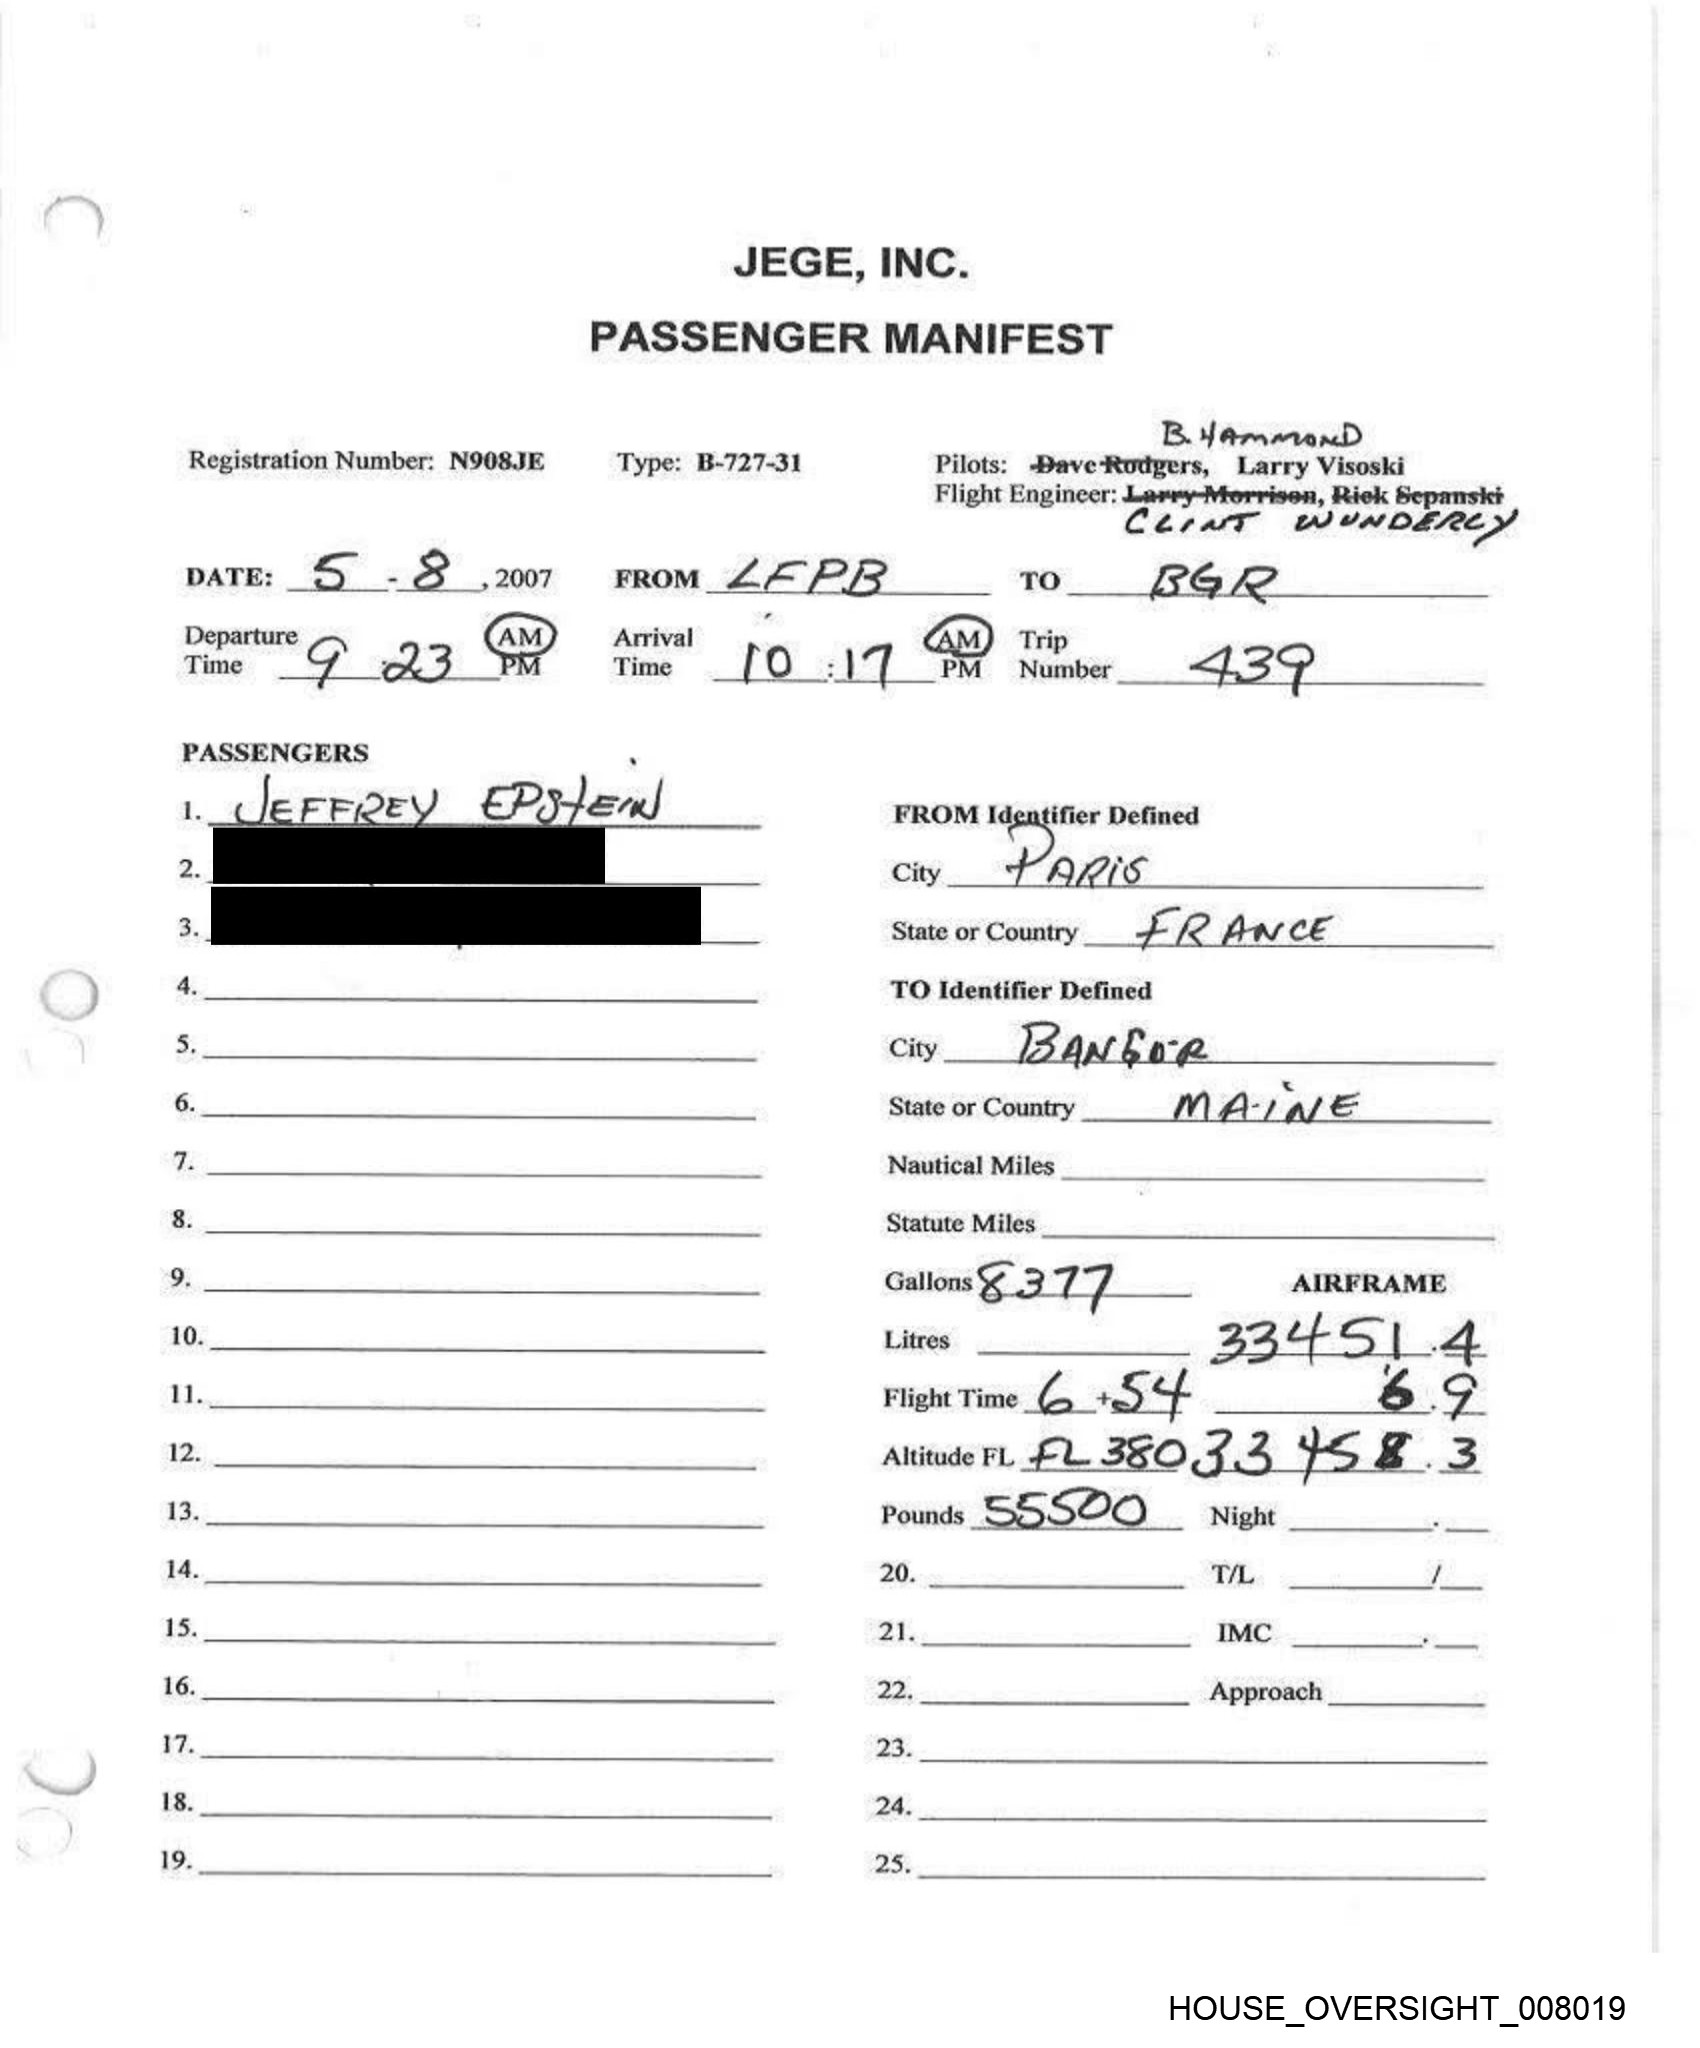 JEGE, INC.
PASSENGER MANIFEST
B. HAMMOND
Registration Number: N908JE Type: B-727-31 Pilots: Dave Rodgers, Larry Visoski
Flight Engineer: Larry Morrison, Rick Sepanski
CLINT WUNDERLY
DATE: 5 - 8, 2007 FROM LFPB TO BGR
Departure Time 9:23 AM PM Arrival Time 10:17 AM PM Trip Number 439
PASSENGERS
1. JEFFREY EPSTEIN
2.
3.
4.
5.
6.
7.
8.
9.
10.
11.
12.
13.
14.
15.
16.
17.
18.
19.
FROM Identifier Defined
City PARIS
State or Country FRANCE
TO Identifier Defined
City BANGOR
State or Country MAINE
Nautical Miles
Statute Miles
Gallons 8377 AIRFRAME
Litres 33451.4
Flight Time 6+54 6.9
Altitude FL FL380 33458.3
Pounds 55500 Night .
20. T/L /
21. IMC .
22. Approach
23.
24.
25.
HOUSE_OVERSIGHT_008019